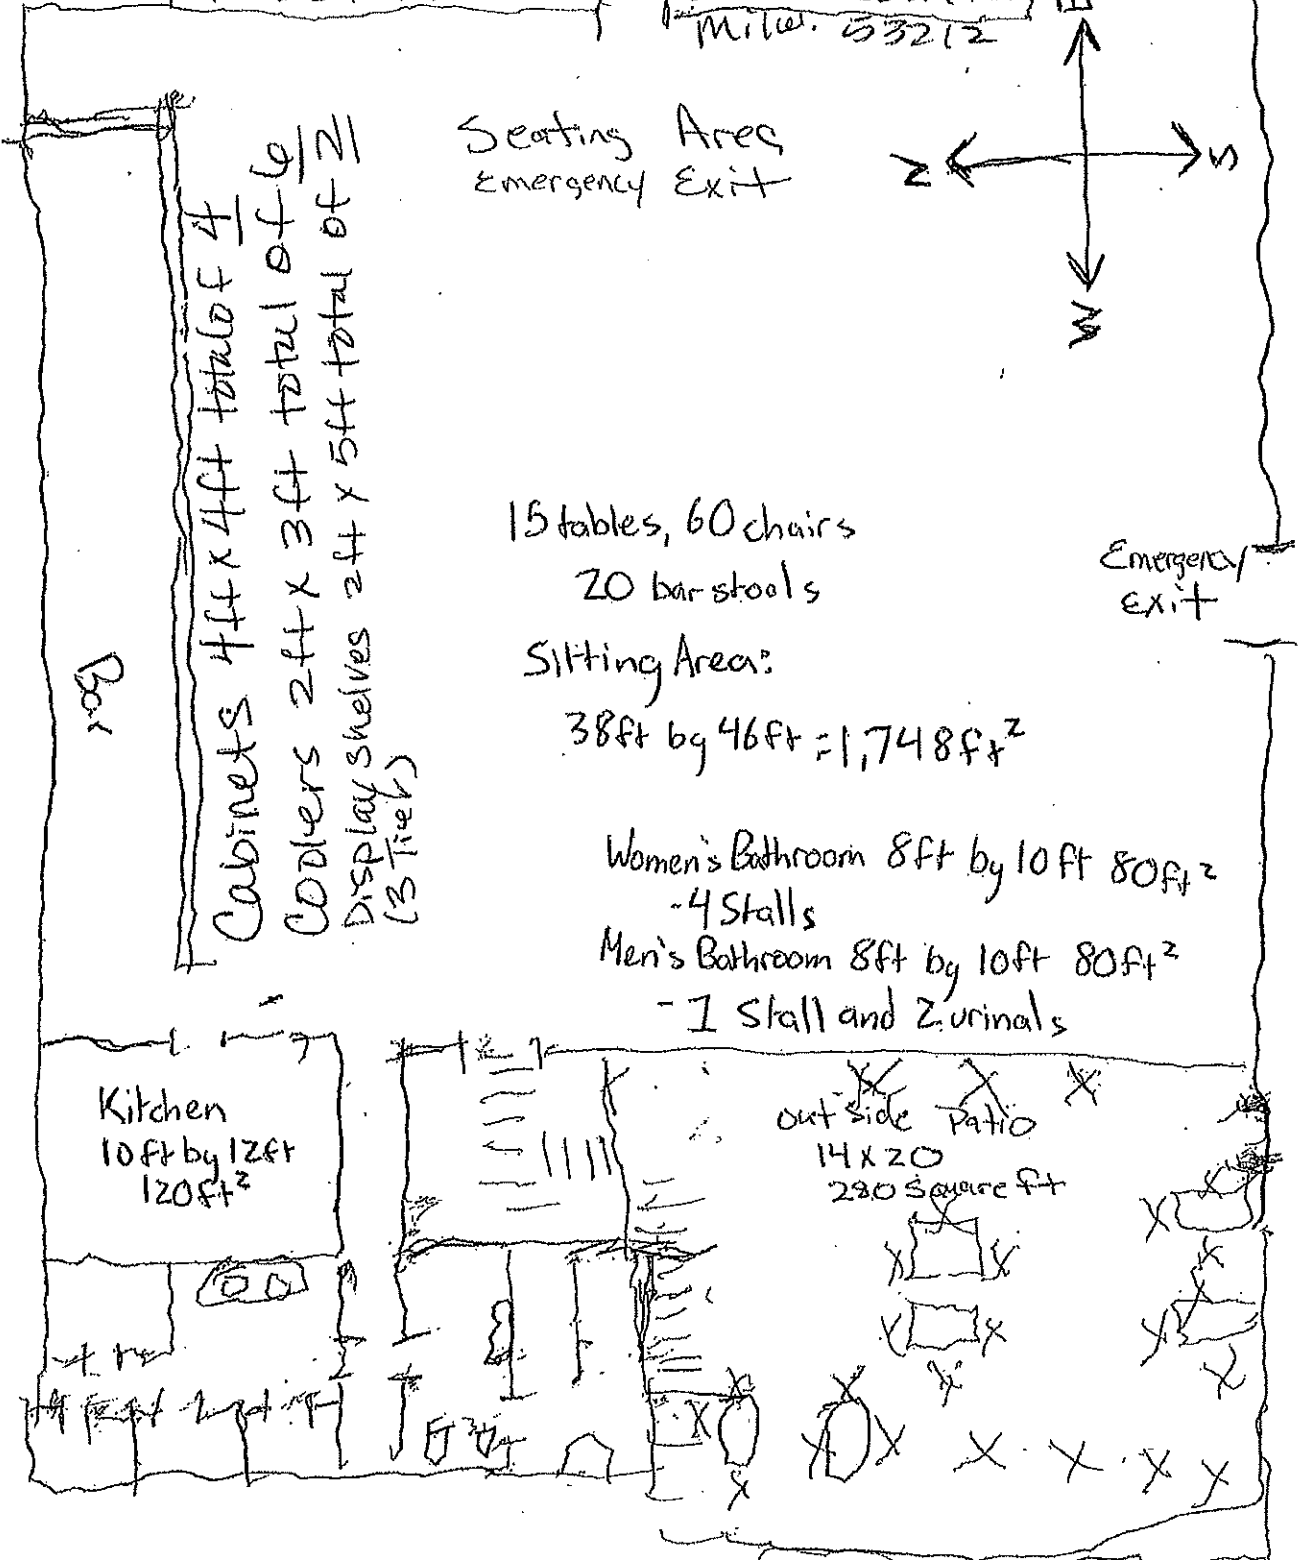 Milw. 53212
E
N
S
W
Seating Area
Emergency Exit
Cabinets 4ft x 4ft total of 4
Coolers 2ft x 3ft total of 6
Display shelves 2ft x 5ft total of 2
(3 Tier)
Bar
15 tables, 60 chairs
20 bar stools
Emergency
Exit
Sitting Area:
38ft by 46ft = 1,748ft²
Women's Bathroom 8ft by 10ft 80ft²
- 4 Stalls
Men's Bathroom 8ft by 10ft 80ft²
- 1 Stall and 2 urinals
Kitchen
10ft by 12ft
120ft²
Outside Patio
14 x 20
280 Square ft